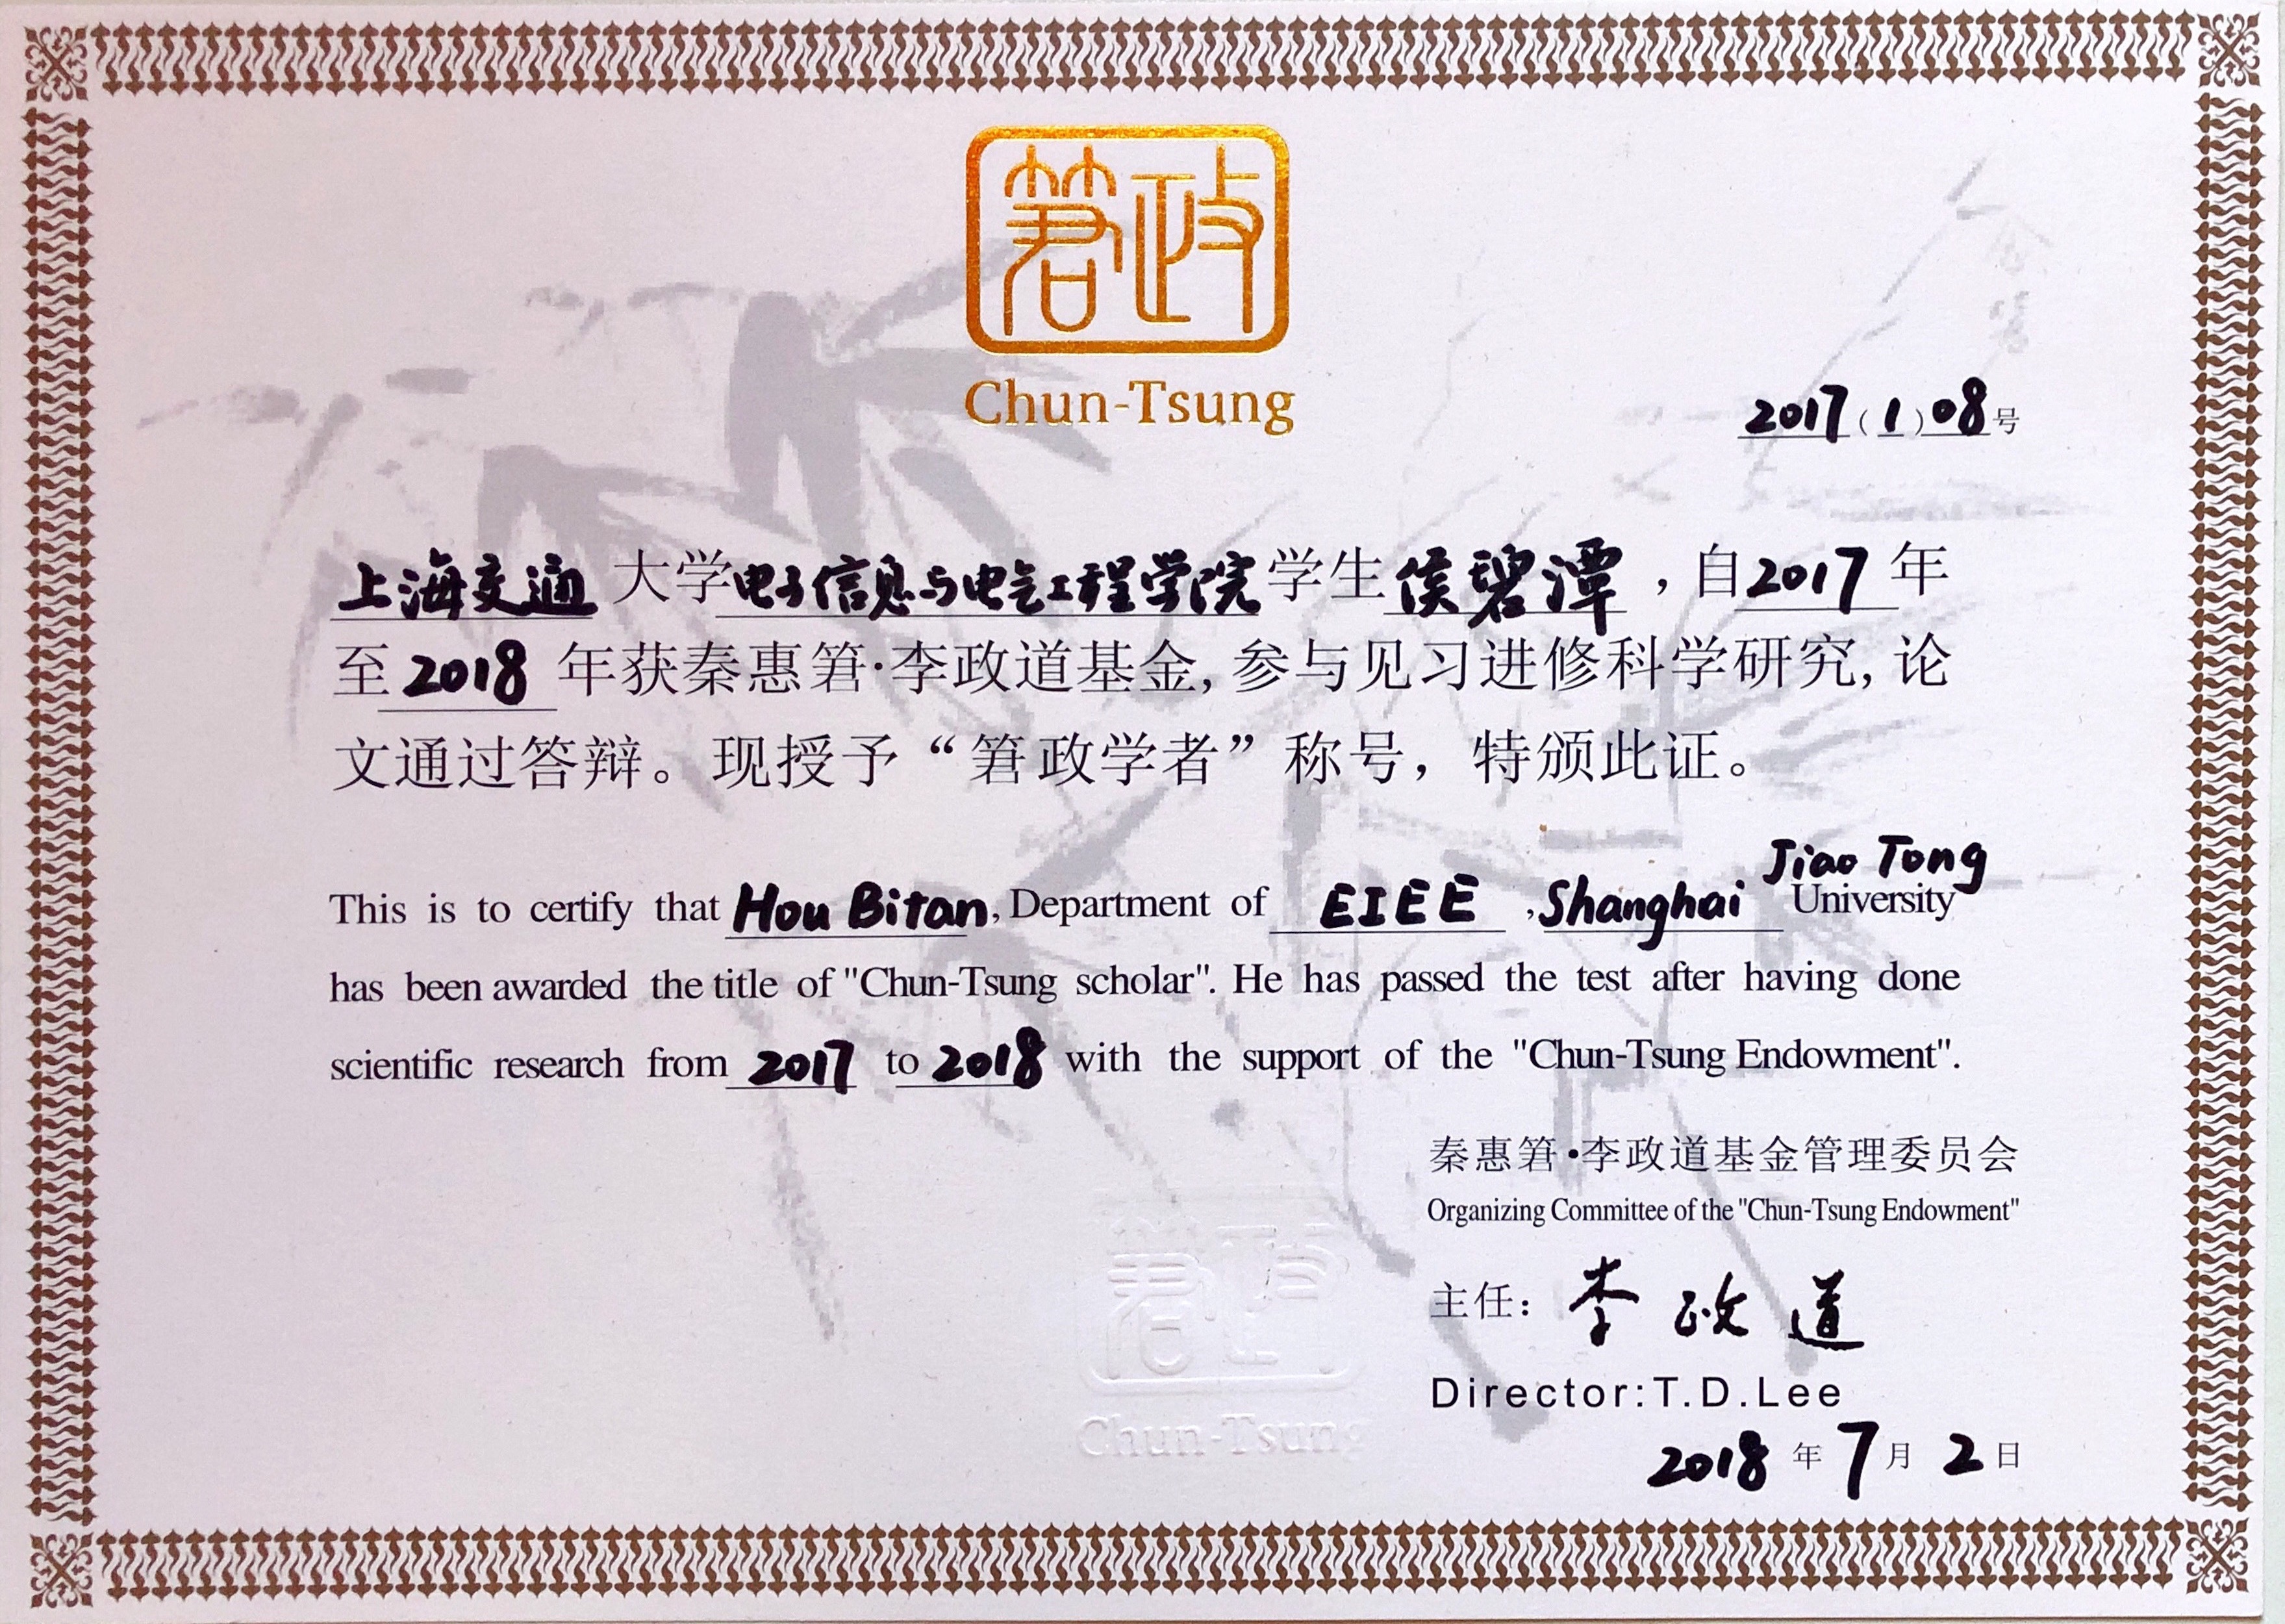 䇹政
Chun-Tsung
2017(1)08号
上海交通大学电子信息与电气工程学院学生侯碧潭，自2017年
至2018年获秦惠䇹·李政道基金,参与见习进修科学研究,论
文通过答辩。现授予“䇹政学者”称号，特颁此证。
Jiao Tong
This is to certify that Hou Bitan, Department of EIEE, Shanghai University
has been awarded the title of "Chun-Tsung scholar". He has passed the test after having done
scientific research from 2017 to 2018 with the support of the "Chun-Tsung Endowment".
秦惠䇹•李政道基金管理委员会
Organizing Committee of the "Chun-Tsung Endowment"
䇹政
主任：李政道
Chun-Tsung
Director:T.D.Lee
2018年7月2日